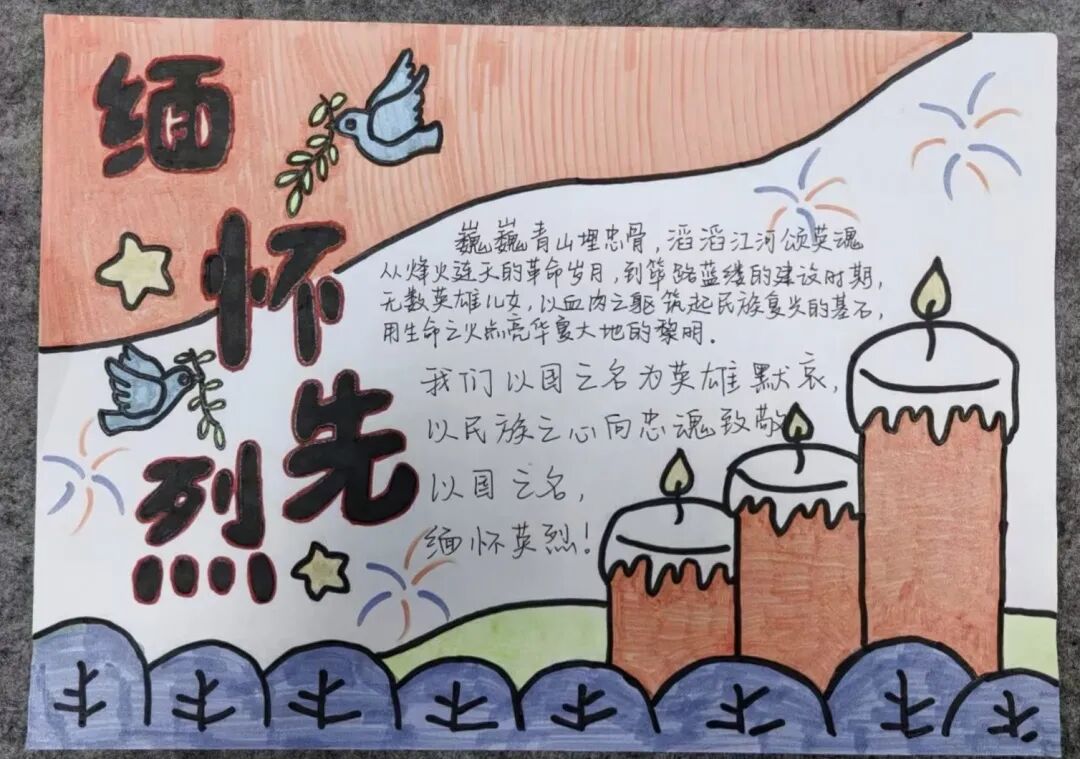 缅怀先烈
巍巍青山埋忠骨，滔滔江河颂英魂
从烽火连天的革命岁月，到筚路蓝缕的建设时期，
无数英雄儿女，以血肉之躯筑起民族复兴的基石，
用生命之火点亮华夏大地的黎明．
我们以国之名为英雄默哀，
以民族之心向忠魂致敬
以国之名，
缅怀英烈！